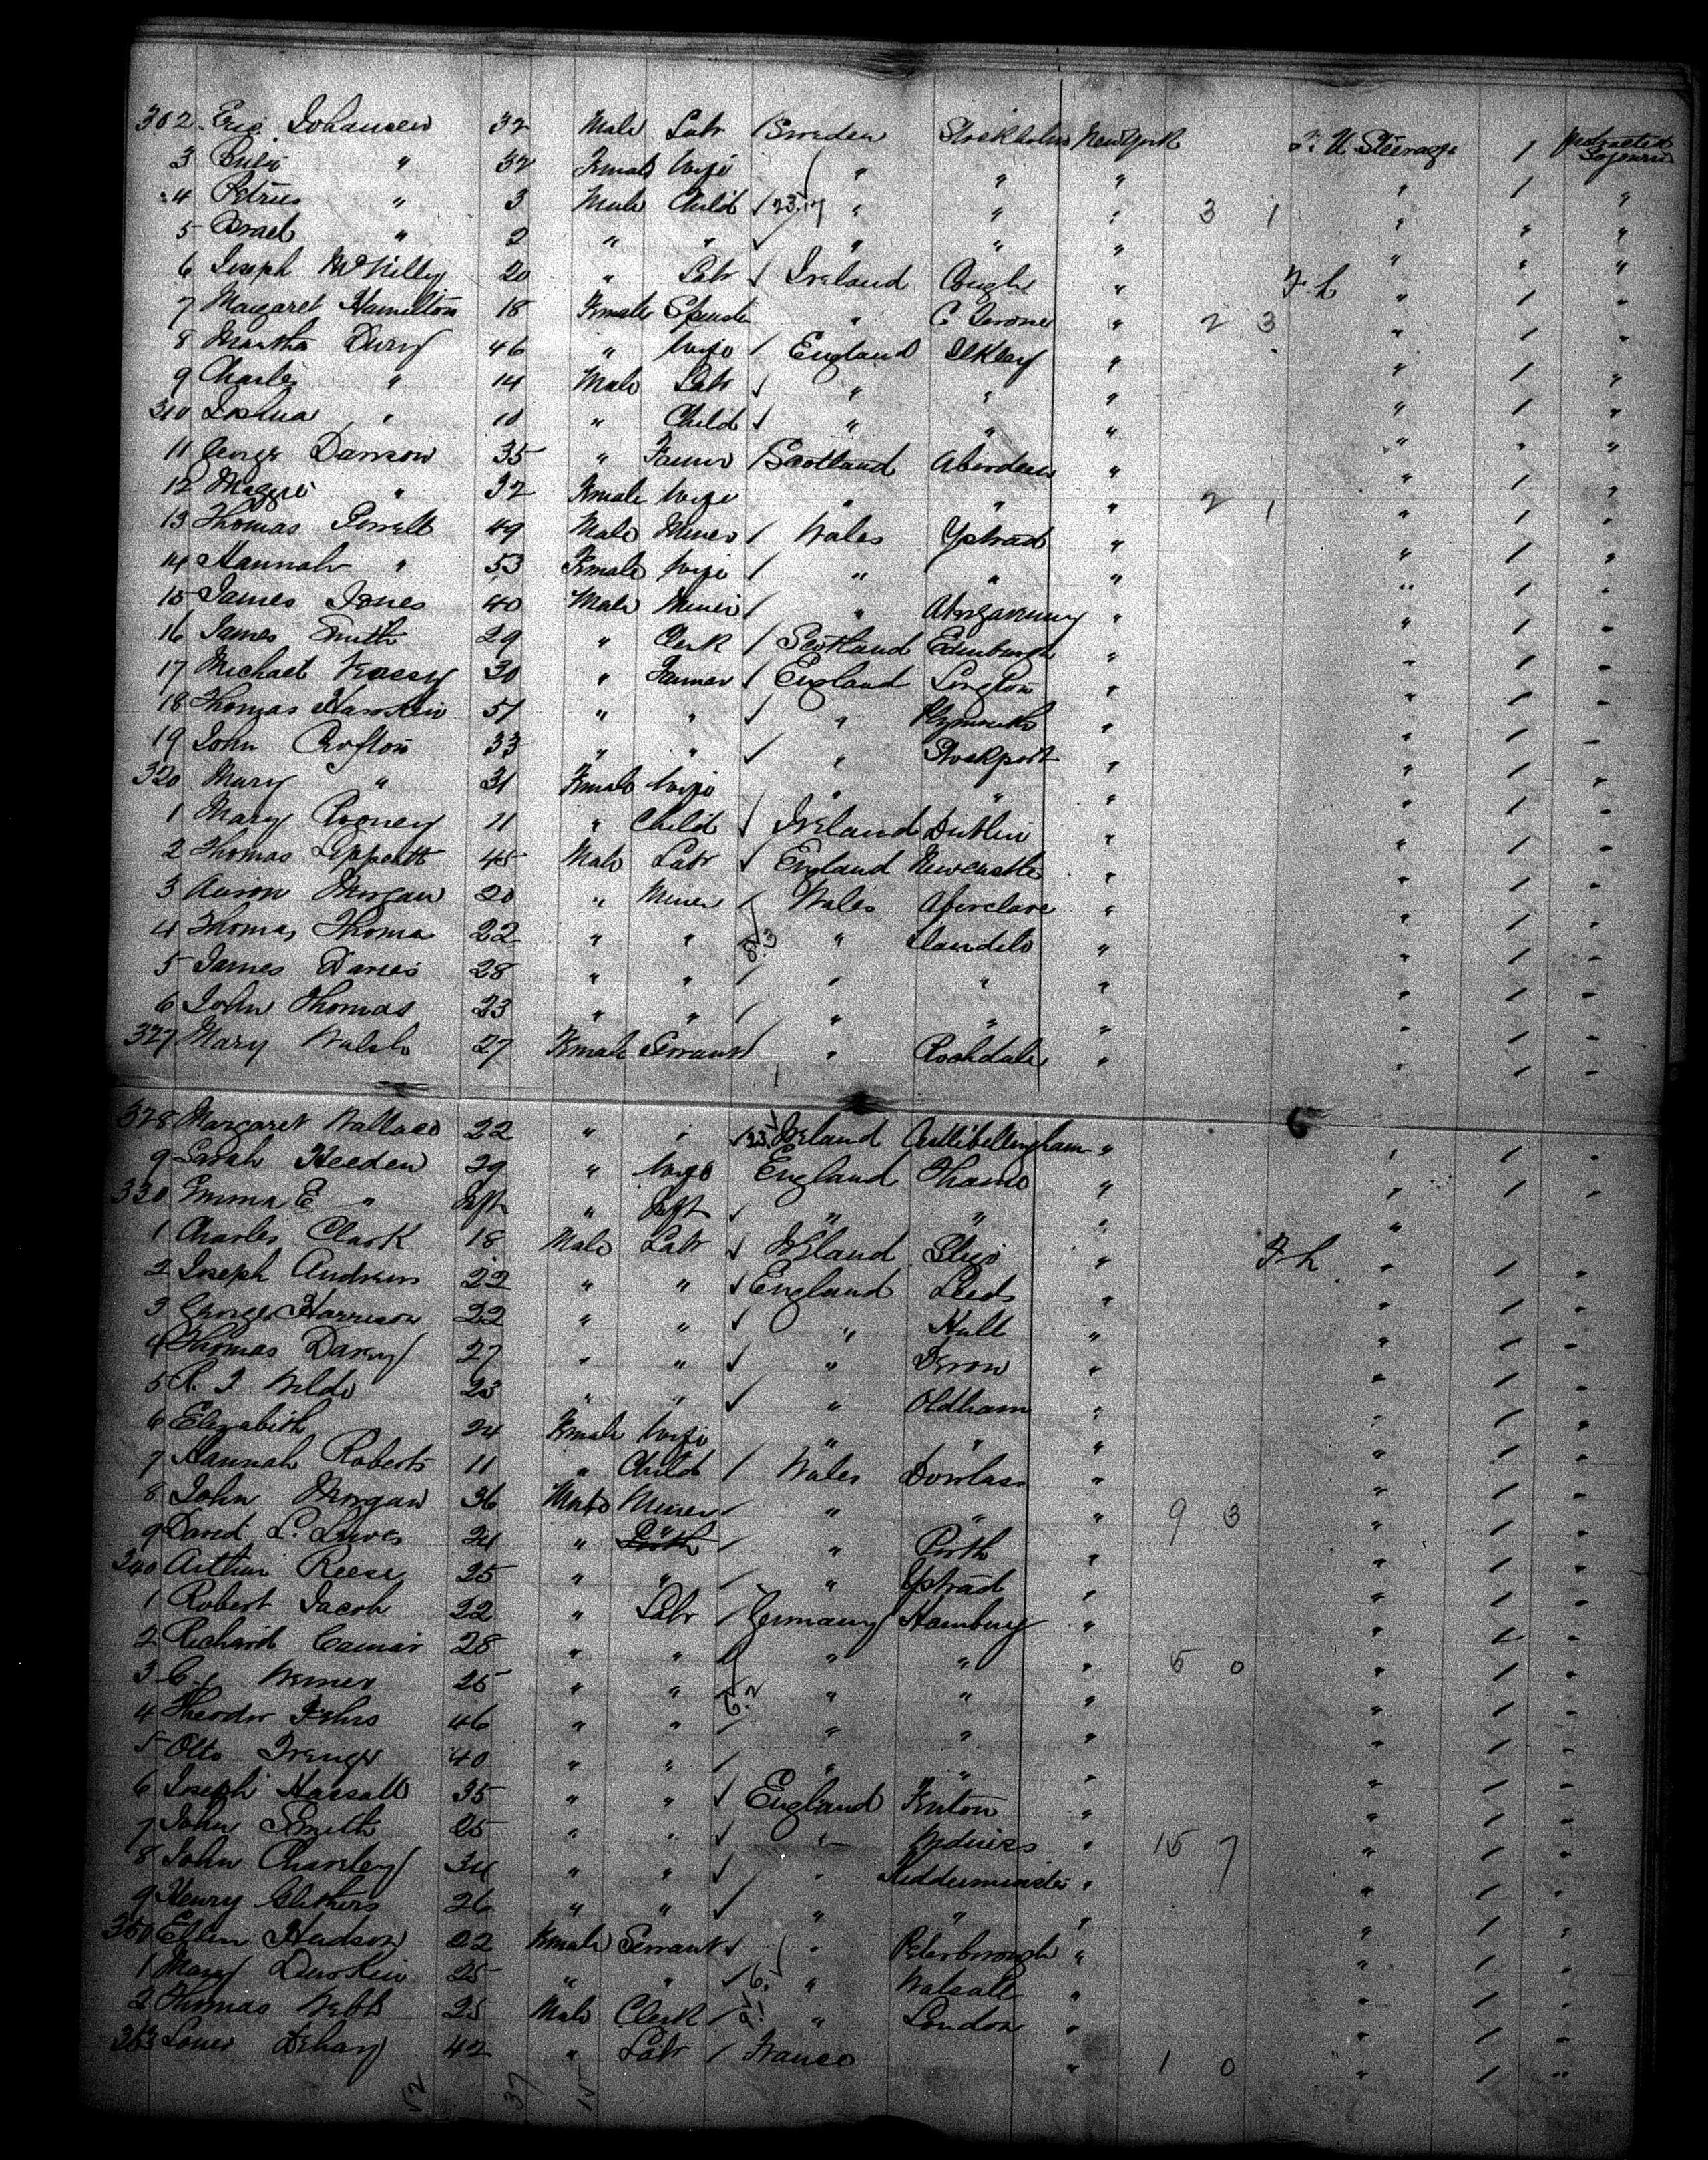 302 Eric Johansen 32 Male Labr / Sweden Stockholm New York F. U Steerage / Protracted Sojourn
3 " 32 Female Wife " " " " / "
4 Petrus " 3 Male Child / 23.17 " " " 3 1 " " "
5 Israel " 2 " " ✓ " " " " " "
6 Joseph McNilly 20 " Labr ✓ Ireland " F. h " / "
7 Margaret Hamilton 18 Female Spinster " " 2 3 " / "
8 Martha Dury 46 " Wife / England Ilkley " " / "
9 Charles " 14 Male Labr ✓ " " " " / "
310 Joshua " 10 " Child ✓ " " " " " "
11 George Dawson 35 " Farmer / Scotland Aberdeen " " / "
12 Maggie " 32 Female Wife " " " 2 1 " / "
13 Thomas Powell 49 Male Miner / Wales Ystrad " " / "
14 Hannah " 53 Female Wife / " " " " / "
15 James Jones 40 Male Miner / " Abergavenny " " / "
16 James Smith 29 " Clerk / Scotland Edinburgh " " / "
17 Michael 30 " Farmer / England Longton " " / "
18 Thomas 51 " " ✓ " Plymouth " " / "
19 John Crofton 33 " " ✓ " Stockport " " / "
320 Mary " 31 Female Wife " " " " / "
1 Mary Rooney 11 " Child ✓ Ireland Dublin " " / "
2 Thomas 45 Male Labr ✓ England Newcastle " " / "
3 Aaron Morgan 20 " Miner / Wales Aberdare " " / "
4 Thomas Thomas 22 " " " Llandilo " " / "
5 James Davies 28 " " / " " " " / "
6 John Thomas 23 " " / " " " " / "
327 Mary Walsh 27 Female Servant / " Rochdale " " / "
328 Margaret Wallace 22 " " / Ireland Castlebellingham " " / "
9 Sarah Heeden 29 " Wife England Thame " " / "
330 Emma E " Inft " Inft ✓ " " " "
1 Charles Clark 18 Male Labr ✓ Ireland Sligo " F. h " / "
2 Joseph Andrews 22 " " ✓ England Leeds " " / "
3 George Harrison 22 " " ✓ " Hull " " / "
4 Thomas Darcy 27 " " ✓ " " " / "
5 R. J Wilde 23 " " ✓ " Oldham " " / "
6 Elizabeth 24 Female Wife " " " " / "
7 Hannah Roberts 11 " Child / Wales Dowlais " " / "
8 John Morgan 36 Male Miner / " " " 9 3 " / "
9 David L. 24 " " / " Porth " " / "
340 Arthur Reese 25 " " / " Ystrad " " / "
1 Robert Jacob 22 " Labr / Germany Hamburg " " / "
2 Richard 28 " " / " " " 5 0 " / "
3 C. Werner 25 " " " " " " / "
4 Theodor 46 " " / " " " " / "
5 Otto 40 " " / " " " " / "
6 Joseph Hassall 35 " " ✓ England " " / "
7 John Smith 25 " " ✓ " " 15 7 " / "
8 John Charsley 34 " " ✓ " Kidderminster " " / "
9 Henry 26 " " ✓ " " " " / "
350 Ellen Hudson 22 Female Servant ✓ " Peterborough " " / "
1 Mary 25 " " ✓ " Walsall " " / "
2 Thomas Webb 25 Male Clerk / " London " " / "
353 Louis 42 " Labr / France " 1 0 " / "
12 37 15